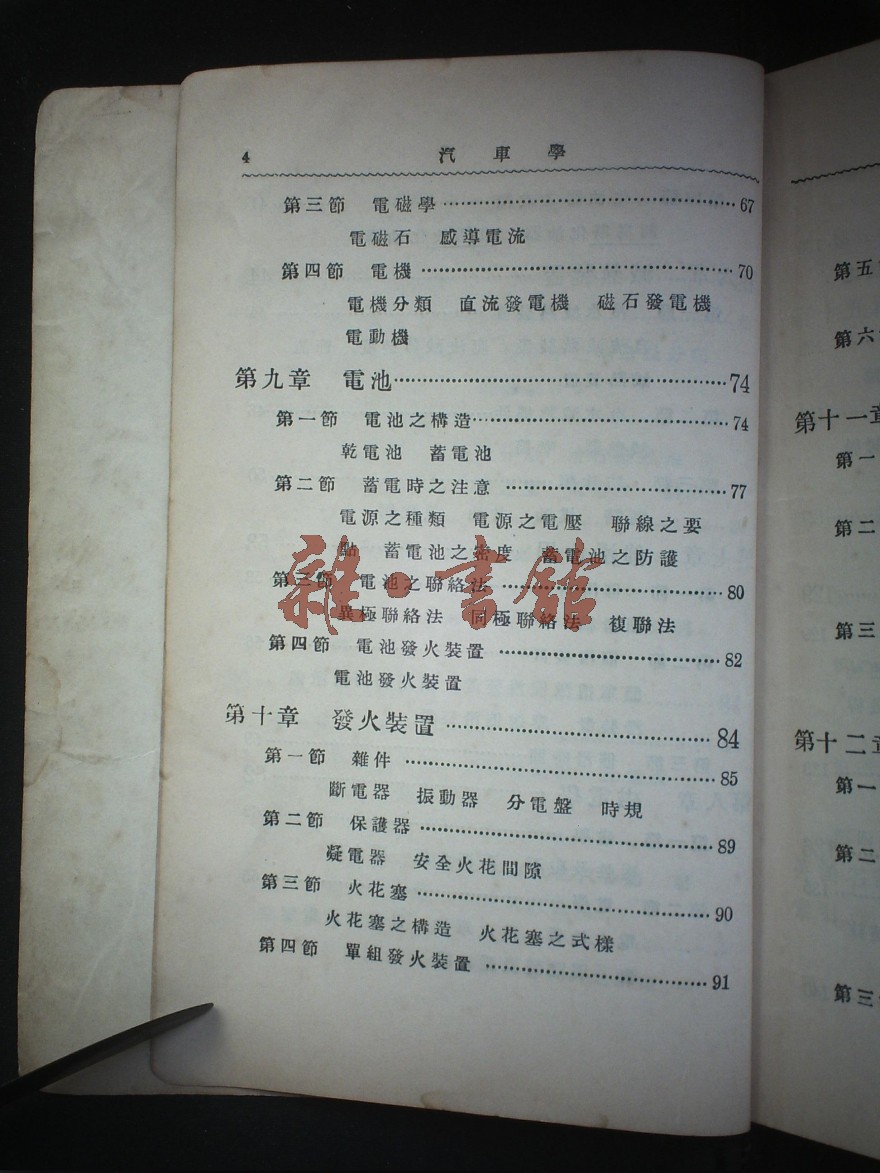 4 汽車學
第三節 電磁學 67
電磁石 感導電流
第四節 電機 70
電機分類 直流發電機 磁石發電機
電動機
第九章 電池 74
第一節 電池之構造 74
乾電池 蓄電池
第二節 蓄電時之注意 77
電源之種類 電源之電壓 聯線之要
點 蓄電池之密度 蓄電池之防護
第三節 電池之聯絡法 80
異極聯絡法 同極聯絡法 復聯法
第四節 電池發火裝置 82
電池發火裝置
第十章 發火裝置 84
第一節 雜件 85
斷電器 振動器 分電盤 時規
第二節 保護器 89
凝電器 安全火花間隙
第三節 火花塞 90
火花塞之構造 火花塞之式樣
第四節 單組發火裝置 91
雜·書館
第五
第六
第十一章
第一
第二
第三
第十二章
第一
第二
第三